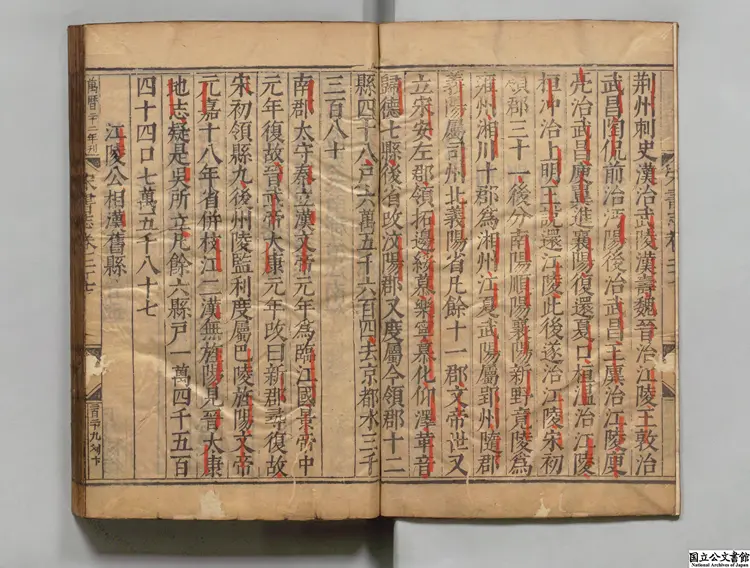 荊州刺史漢治武陵漢壽魏晉治江陵王敦治
武昌陶侃前治沔陽後治武昌王廙治江陵庾
亮治武昌庾翼進襄陽復還夏口桓溫治江陵
桓沖治上明王忱還江陵此後遂治江陵宋初
領郡三十一後分南陽順陽襄陽新野竟陵為
雍州湘川十郡為湘州江夏武陽屬郢州隨郡
義陽屬司州北義陽省凡餘十一郡文帝世又
立宋安左郡領拓邊綏慕樂寧慕化仰澤革音
歸德七縣後省改汶陽郡又度屬今領郡十二
縣四十八戶六萬五千六百四去京都水三千
三百八十
南郡太守秦立漢文帝元年為臨江國景帝中
元年復故晉武帝太康元年改曰新郡尋復故
宋初領縣九後州陵監利度屬巴陵旌陽文帝
元嘉十八年省併枝江二漢無旌陽見晉太康
地志疑是吳所立凡餘六縣戶一萬四千五百
四十四口七萬五千八十七
江陵公相漢舊縣
萬曆二十二年刊
宋書志卷二十七
国立公文書館
National Archives of Japan